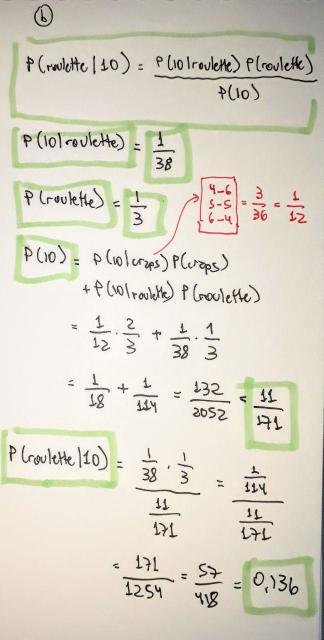 b
P(roulette|10) = P(10|roulette) P(roulette) / P(10)
P(10|roulette) = 1/38
P(roulette) = 1/3
4-6
5-5
6-4
= 3/36 = 1/12
P(10) = P(10|craps) P(craps)
+ P(10|roulette) P(roulette)
= 1/12 · 2/3 + 1/38 · 1/3
= 1/18 + 1/114 = 132/2052 = 11/171
P(roulette|10) = (1/38 · 1/3) / (11/171) = (1/114) / (11/171)
= 171/1254 = 57/418 = 0,136